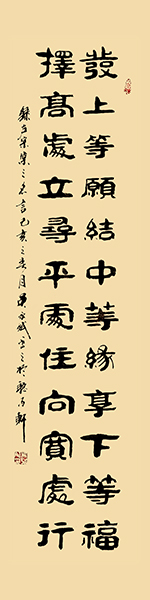 發上等願結中等緣享下等福
擇高處立尋平處住向寬處行
錄左宗棠之名言己亥之春月